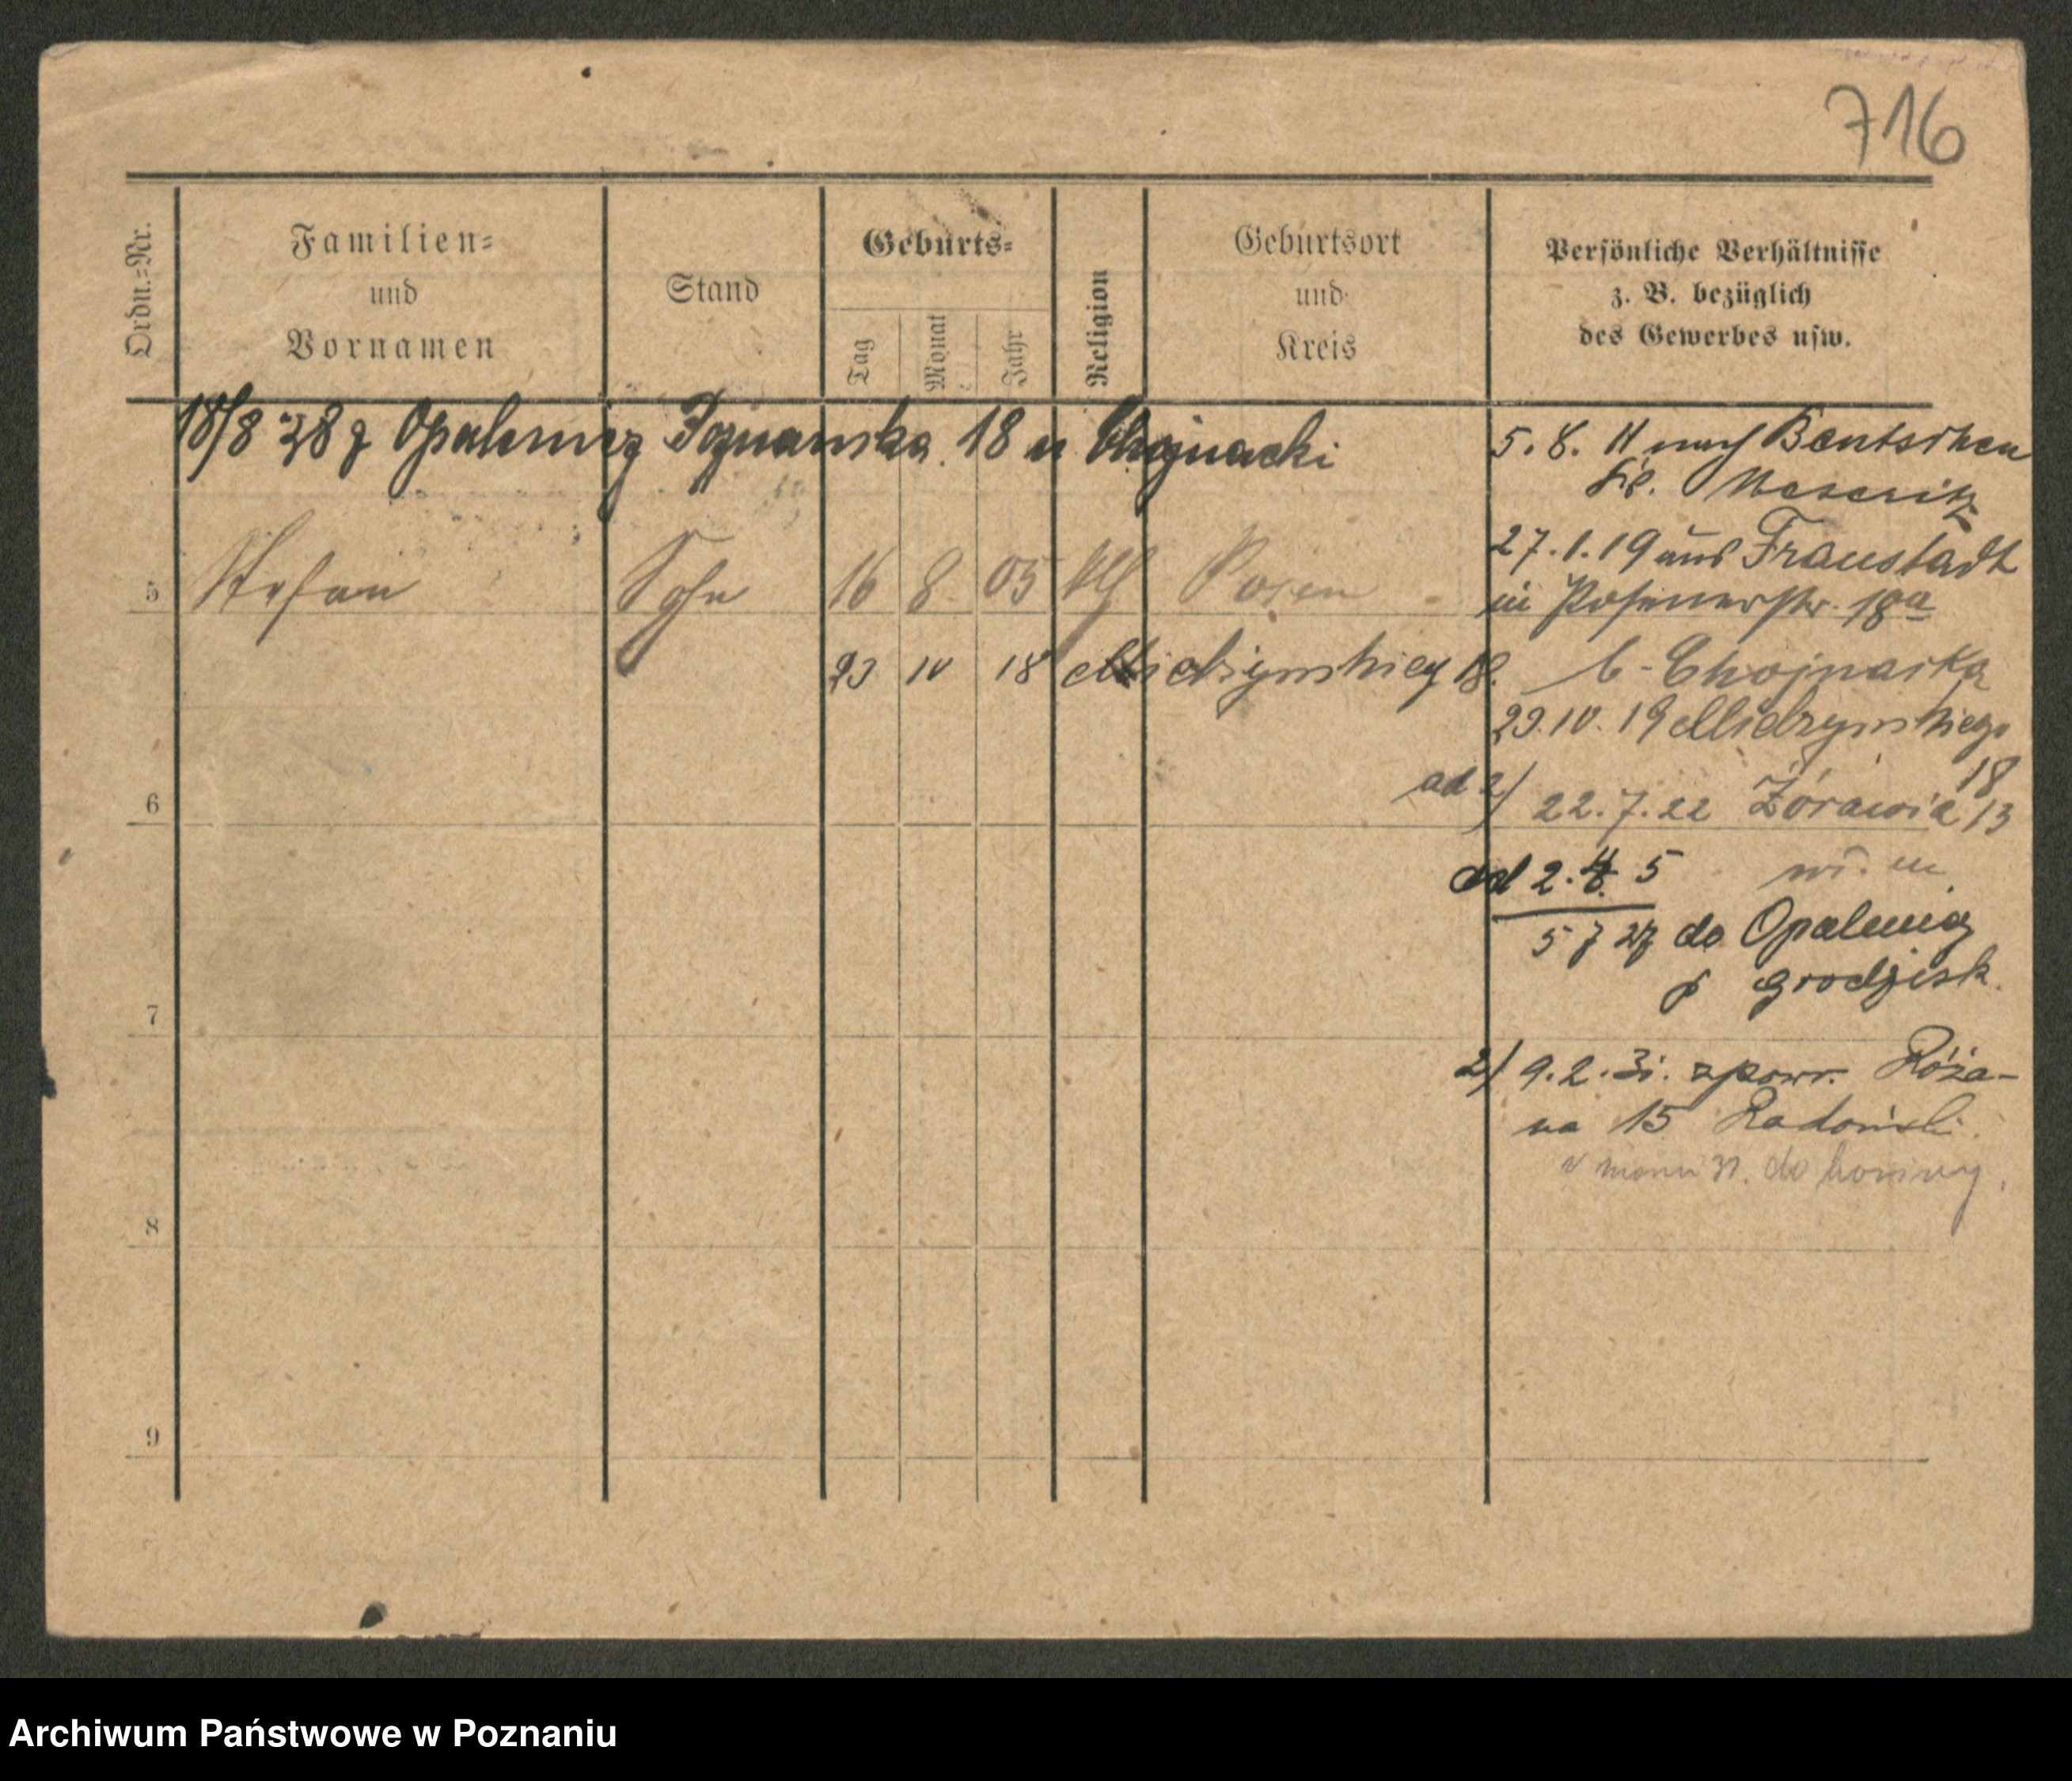 716
Ordn.=Nr.
Familien=
und
Vornamen
Stand
Geburts=
Tag
Monat
Jahr
Religion
Geburtsort
und
Kreis
Persönliche Verhältnisse
z. B. bezüglich
des Gewerbes usw.
18/8 28 z Opalenicy Poznańska 18 u Chojnacki
5. 8. 11 nach Bentschen
Kr. Meseritz
27.1.19 aus Fraustadt
in Posenerstr. 18a
5 Stefan Sohn 16 8 05 kth Posen
23 10 18 Mielżyńskieg 18.
b-Chojnacka
29.10.19 Mielżyńskiego
18
6
ad 2/ 22.7.22 Żórawia 13
ad 2. 4. 5
5 7 27 do Opalenicy
p Grodzisk.
7
2/ 9.2.31. zpowr. Róża-
na 15 Radoński.
do
8
9
Archiwum Państwowe w Poznaniu